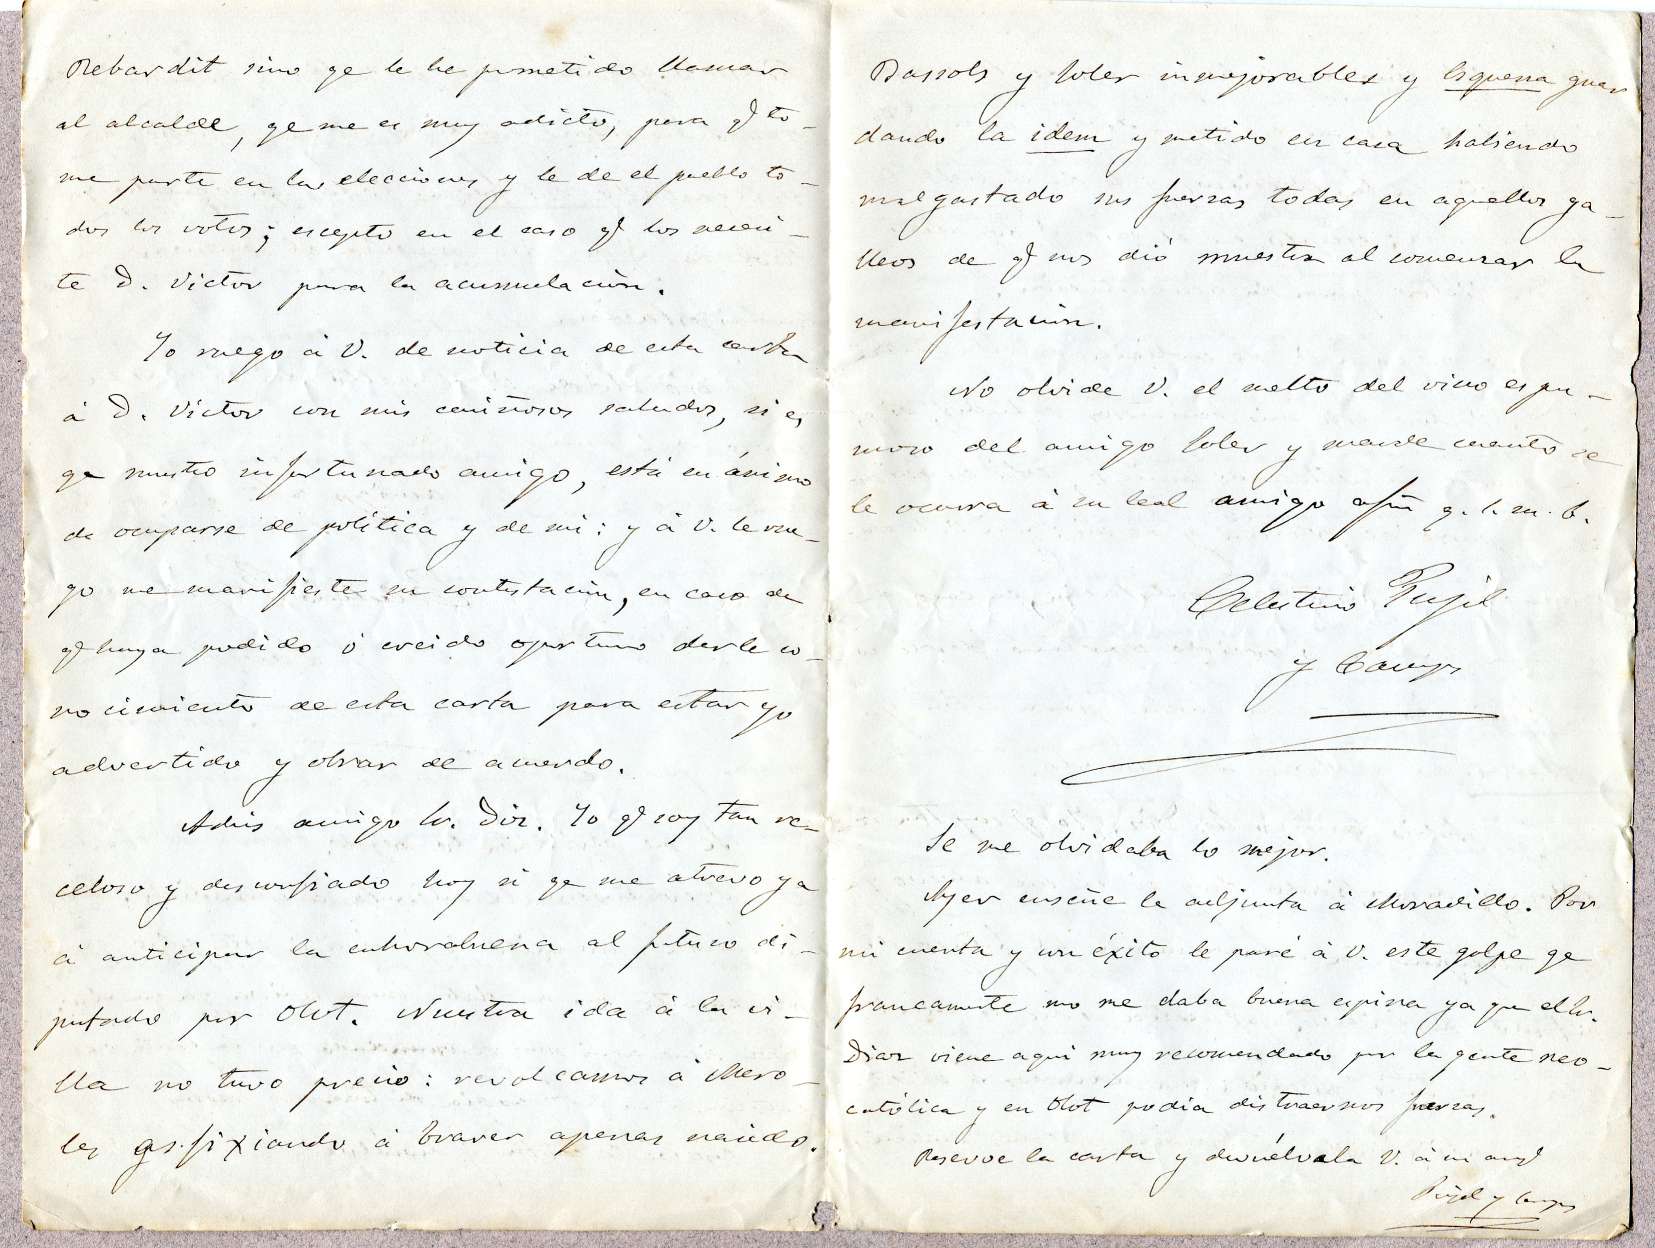 Rebardit sino qe le he prometido llamar
al alcalde, qe me es muy adicto, para q̃ to-
me parte en las elecciones y le de el pueblo to-
dos los votos; escepto en el caso q̃ los necesi-
te D. Victor para la acumulacion.
Yo ruego á V. de noticia de esta carta
á D. Victor con mis cariñosos saludos, si es
qe nuestro infortunado amigo, está en ánimo
de ocuparse de política y de mi: y á V. le rue-
go me manifieste su contestacion, en caso de
q̃ haya podido ó creido oportuno darle co-
nocimiento de esta carta para estar yo
advertido y obrar de acuerdo.
Adios amigo Sr. Diz. Yo q̃ soy tan re-
celoso y desconfiado hoy si qe me atrevo ya
á anticipar la enhorabuena al futuro di-
putado por Olot. Nuestra ida á la vi-
lla no tuvo precio: revolcamos á Mero-
les asfixiando á apenas nacido.
Bassols y Soler inmejorables y Esquena guar
dando la idem y metido en casa habiendo
malgastado sus fuerzas todas en aquellos ga-
lleos de q̃ nos dió muestra al comenzar la
manifestacion.
No olvide V. el suelto del vino espu-
moso del amigo Soler y mande cuanto se
le ocurra á su leal amigo afm̃ q. s. m. b.
Celestino Pujol
y Camps
Se me olvidaba lo mejor.
Ayer enseñe la adjunta á Moradillo. Por
mi cuenta y con éxito le paré á V. este golpe qe
francamente no me daba buena espina ya que el Sr.
Diaz viene aqui muy recomendado por la gente neo-
católica y en Olot podia distraernos fuerzas.
Reserve la carta y devuélvala V. á su amg̃
Pujol y Camps